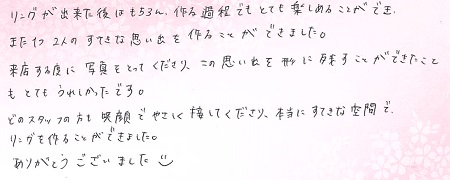 リングが出来た後はもちろん、作る過程でもとても楽しめることができ、
また1つ 2人のすてきな思い出を作ることができました。
来店する度に写真をとってくださり、この思い出を形に残すことができたこと
もとてもうれしかったです。
どのスタッフの方も笑顔でやさしく接してくださり、本当にすてきな空間で、
リングを作ることができました。
ありがとうございました